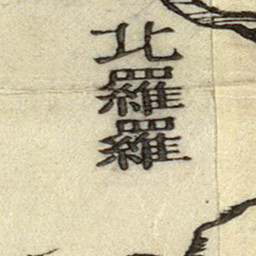 北羅羅